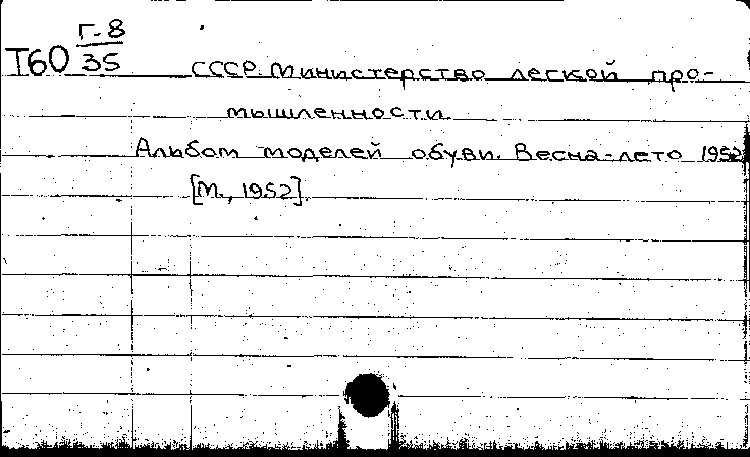 Т60 Г-8/35
СССР. Министерство легкой про-
мышленности.
Альбом моделей обуви. Весна-лето 1952
[М., 1952].